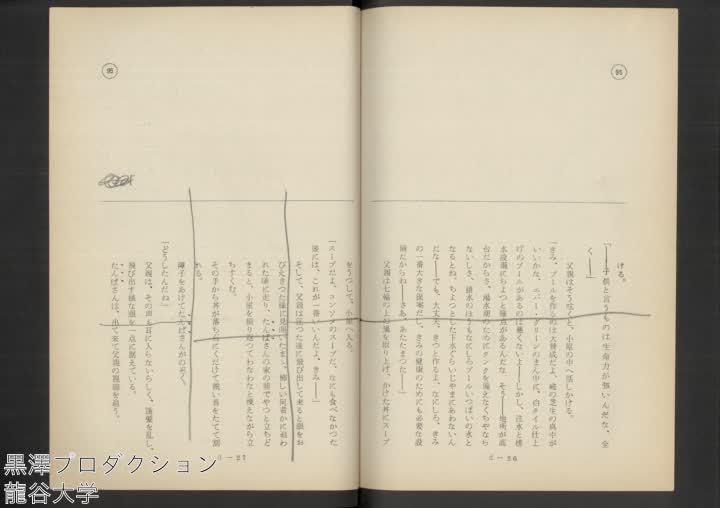 95
ける。
「――子供と言うものは生命力が強いんだな、全
く――」
父親はそう呟くと、小屋の中へ話しかける。
「きみ、プールを作るのは大賛成だよ、庭の芝生の真中が
いいかな、エバー・グリーンのまん中に、白タイル仕上
げのプールがあるのは悪くないよ――しかし、注水と排
水設備にちょっと難点があるんだな、そう――場所が高
台だからさ、湯水期のためにタンクを備えなくちゃなら
ないしさ、排水のほうもなにしろプールいっぱいの水と
なるとね、ちょっとした下水ぐらいじゃまにあわないん
だな――でも、大丈夫、きっと作るよ、なにしろ、きみ
の一番大きな提案だし、きみの健康のためにも必要な設
備だからね――さあ、あたたまった――」
父親は七輪の上の鍋を取り上げ、かけた丼にスープ
をうつして、小屋へ入る。
「スープだよ、コンソメのスープだ、なにも食べなかった
後には、これが一番いいんだよ、きみ――」
そして、父親は這った様に飛び出して来ると眼をお
びえきった様に見開いたまゝ、怖しい何者かに追わ
れた様に走り、たんばさんの家の前でやっと立ちど
まると、小屋を振り返ってわなわなと慄えながら立
ちすくむ。
その手から丼が落ちて石にくだけて鋭い音をたてて割
れる。
障子をあけてたんばさんがのぞく。
「どうしたんだね」
父親は、その声も耳に入らないらしく、蓬髪を乱し、
飛び出す様な眼を一点に据えている。
たんばさんは、出て来て父親の視線を追う。
95
黒澤プロダクション
龍谷大学